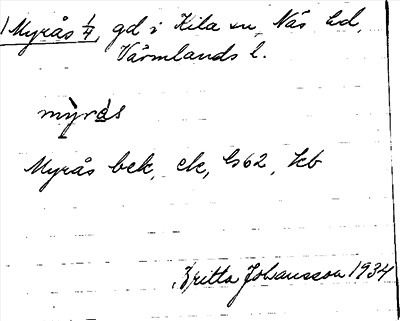 Myrås 1/4, gd i Kila sn, Näs hd,
Värmlands l.
myrås
Myrås bek, ek, Gs62, kb
Britta Johansson 1934